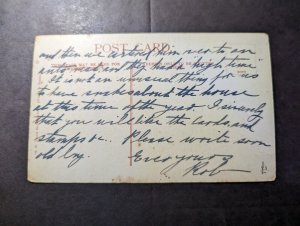 POST CARD
and then we carried him next to an
ants nest and then had a "high time"
It is not an unusual thing for us
to have snakes about the house
at this time of the year. I sincerely
that you will like the cards, and
stamps &c.. Please write soon
old boy.
Ever yours
Rob